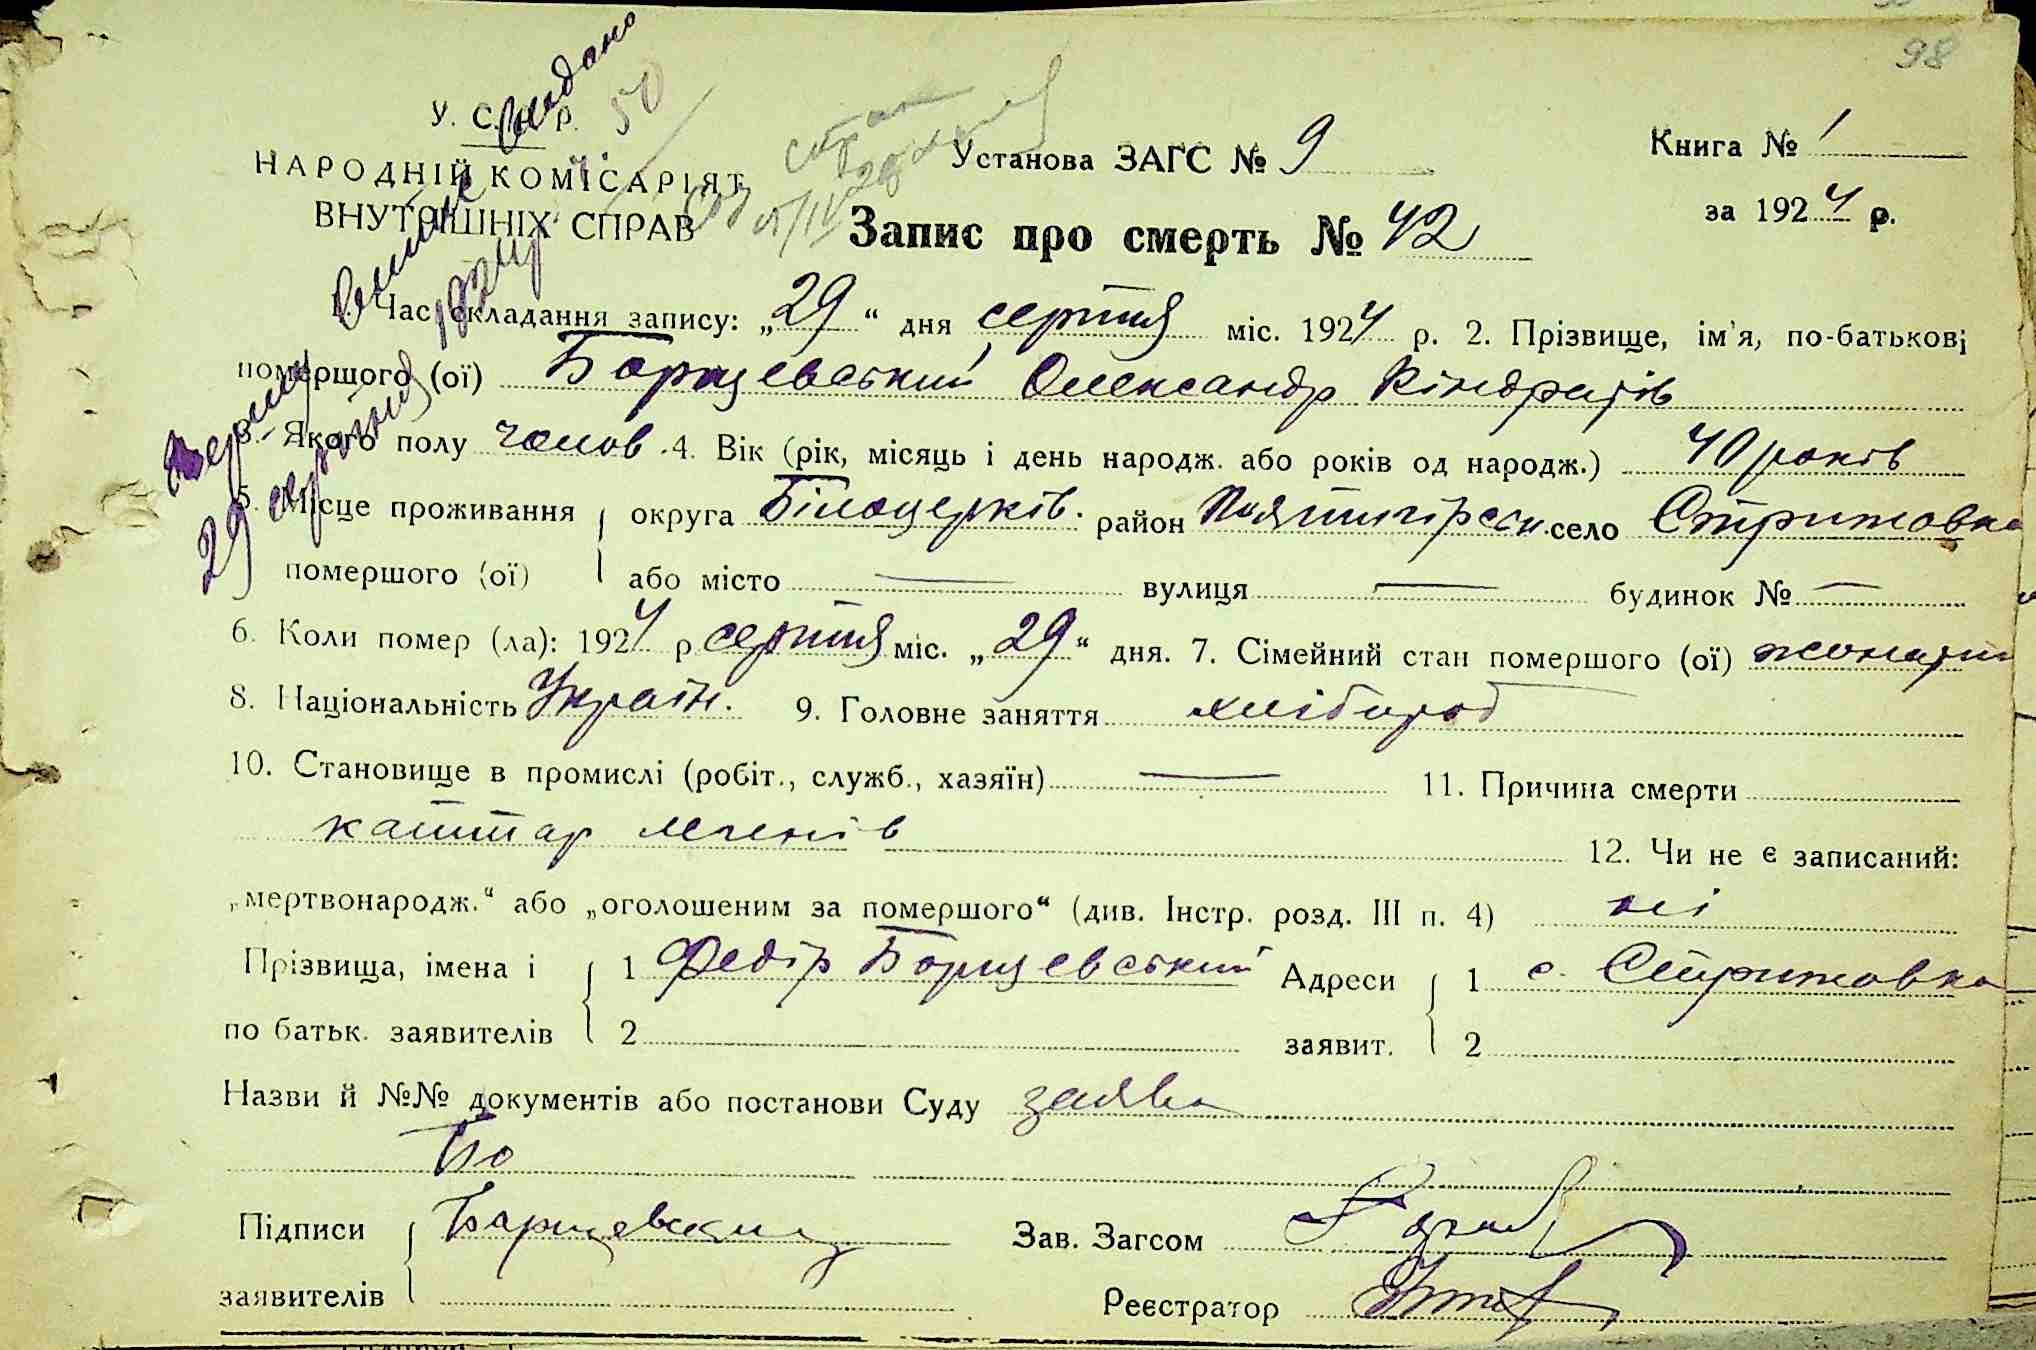 98
У. С. Р. Р.
НАРОДНІЙ КОМІСАРІЯТ
ВНУТРІШНІХ СПРАВ
Установа ЗАГС № 9
Книга № 1
за 1924 р.
Запис про смерть № 42
Виписку видано
29 серпня 1924 р.
1. Час складання запису: „29“ дня серпня міс. 1924 р. 2. Прізвище, ім'я, по-батькові
помершого (ої) Борщевський Олександр Кіндратів
3. Якого полу чолов. 4. Вік (рік, місяць і день народж. або років од народж.) 40 років
5. Місце проживання округа Білоцерків. район Пятигірськ. село Стрижовка
помершого (ої) або місто — вулиця — будинок № —
6. Коли помер (ла): 1924 р серпня міс. „29“ дня. 7. Сімейний стан помершого (ої) жонатий
8. Національність Україн. 9. Головне заняття хлібороб
10. Становище в промислі (робіт., служб., хазяїн) — 11. Причина смерти
каттар легенів
12. Чи не є записаний:
„мертвонародж.“ або „оголошеним за помершого“ (див. Інстр. розд. III п. 4) ні
Прізвища, імена і 1 Федір Борщевський Адреси 1 с. Стрижовка
по батьк. заявителів 2 заявит. 2
Назви й №№ документів або постанови Суду заява
Підписи Борщевский Зав. Загсом
заявителів Реєстратор